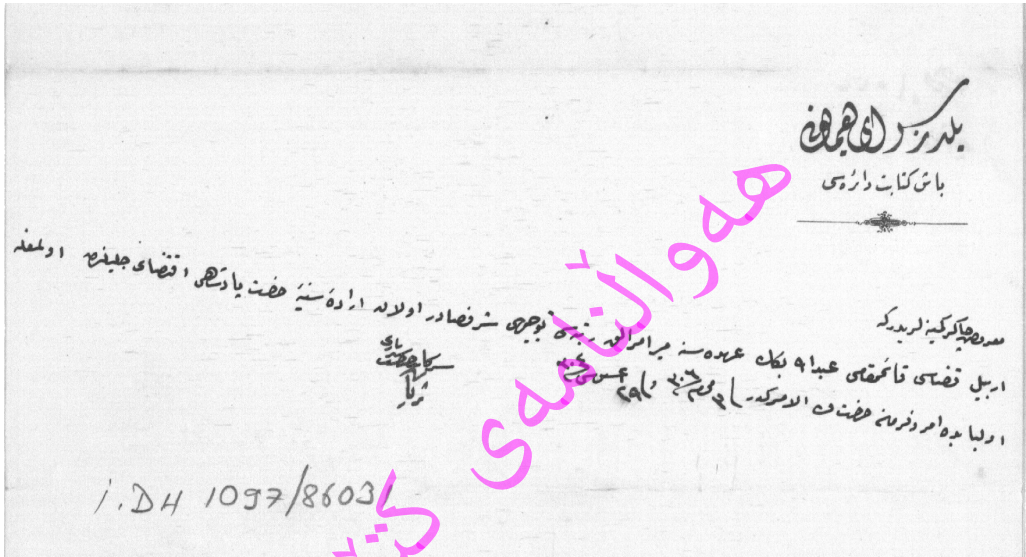 یلدز سرای همایونی
باش کتابت دائره‌سی
معروض چاکر کمینه‌لریدرکه
اربیل قضاسی قائمقامی عبدالله بکک عهده‌سنه میرامرالق رتبه‌سی توجیهی شرفصادر اولان اراده سنیه حضرت پادشاهی اقتضای جلیلندن اولمغله
اولبابده امر و فرمان حضرت من له الامرکدر
سرکاتب حضرت شهریاری
ثریا
هەواڵنامەی
i.DH 1097/86031